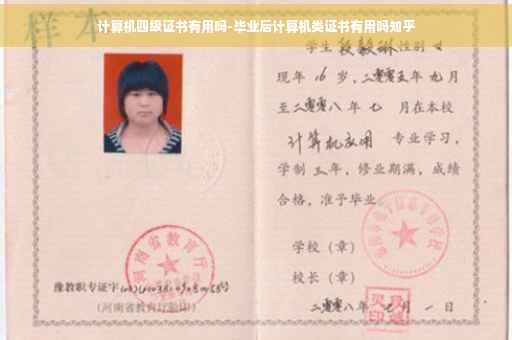 计算机四级证书有用吗-毕业后计算机类证书有用吗知乎
样本
学生 段毅琳 性别 女
现年 16 岁,二零零五年 九月
至二零零八年 七 月在本校
计算机应用 专业学习,
学制 三 年,修业期满,成绩
合格,准予毕业
学校(章)
校长(章)
二零零八年 月 一 日
河南省教育厅
豫教职专证字
(河南省教育厅验印)